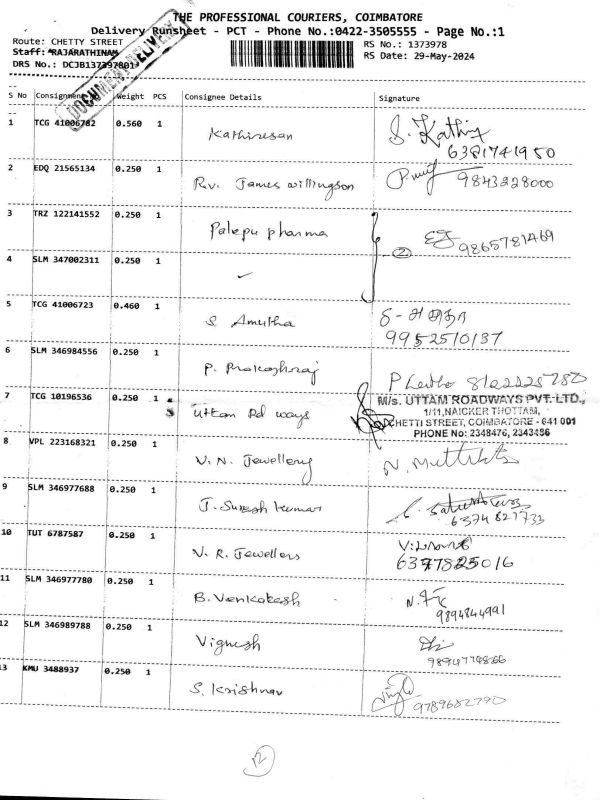 THE PROFESSIONAL COURIERS, COIMBATORE
Delivery Runsheet - PCT - Phone No.:0422-3505555 - Page No.:1
Route: CHETTY STREET
RS No.: 1373978
Staff: *RAJARATHINAM
RS Date: 29-May-2024
DRS No.: DCJB137397801
DOCUMENT DELIVERY
S No Consignment No Weight PCS Consignee Details Signature
1 TCG 41006782 0.560 1 Kathiresan S. Kathir
6381741950
2 EDQ 21565134 0.250 1 Rev. James willingson 9843228000
3 TRZ 122141552 0.250 1 Palepu pharma 9865781469
2
4 SLM 347002311 0.250 1 ✓
5 TCG 41006723 0.460 1 S Amutha
9952510137
6 SLM 346984556 0.250 1 P. Prakashraj
7 TCG 10196536 0.250 1 Uttam Rd ways
M/s. UTTAM ROADWAYS PVT. LTD.,
1/11, NAICKER THOTTAM,
CHETTI STREET, COIMBATORE - 641 001
PHONE No: 2348476, 2343486
8 VPL 223168321 0.250 1 V. N. Jewellery
9 SLM 346977688 0.250 1 J. Suresh kumar
6374821733
10 TUT 6787587 0.250 1 V. R. Jewellers
6377825016
11 SLM 346977780 0.250 1 B. Venkatesh
9894844991
12 SLM 346989788 0.250 1 Vignesh
9894774866
13 KMU 3488937 0.250 1 S. Krishnan 9789682790
12